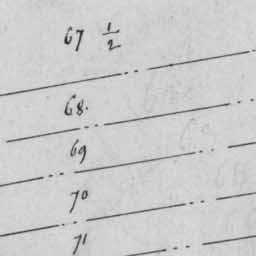 67 1/2
68.
69
70
71